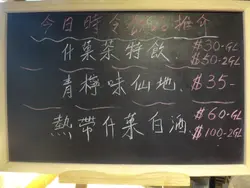 今日時令飲品推介
什菓茶特飲 $30-GL
$50-2GL
青檸味仙地 $35-
熱帶什菓白酒 $60-GL
$100-2GL